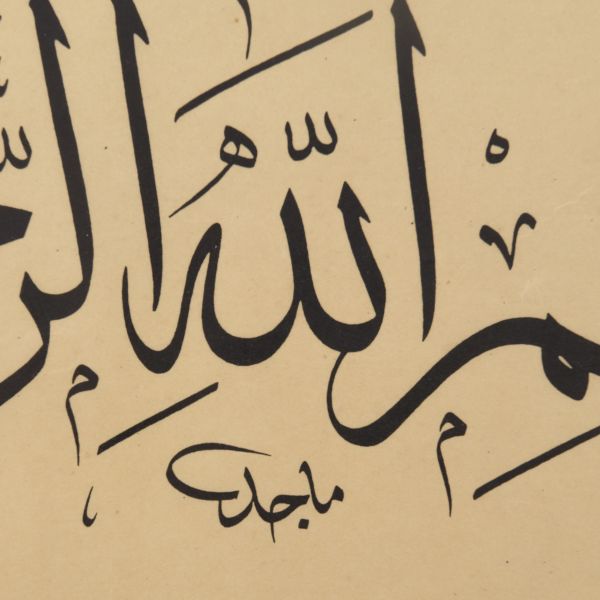 م الله الر
ماجد